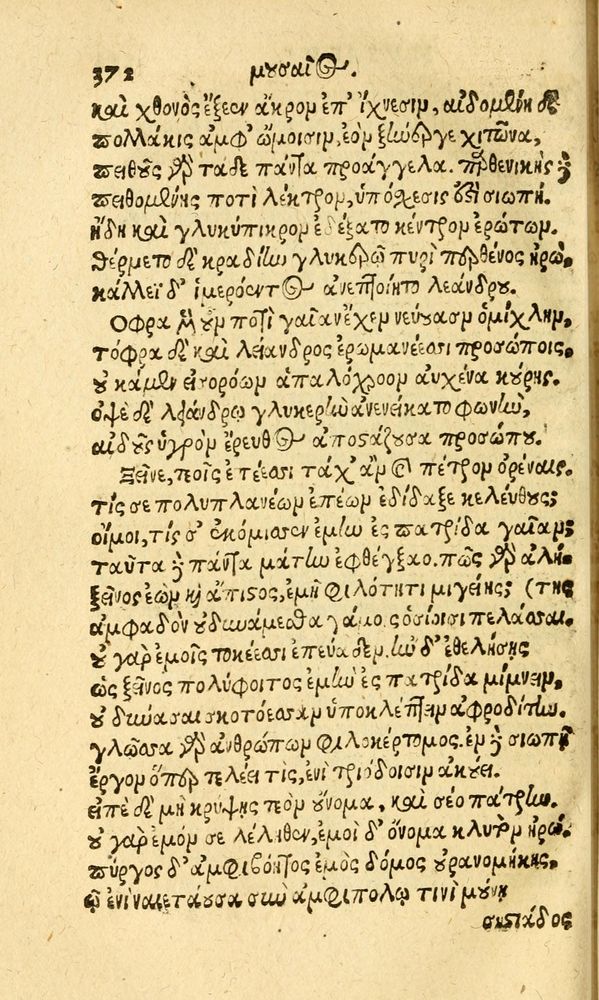 372 μουσαῖος.
καὶ χθονὸς ἔξεεν ἄκρον ἐπ' ἴχνεσιν, αἰδομένη δὲ
πολλάκις ἀμφ' ὤμοισιν, ἑὸν ξυνέεργε χιτῶνα,
πειθοῦς γὰρ τάδε πάντα προάγγελα. παρθενικῆς γὰρ
πειθομένης ποτὶ λέκτρον, ὑπόσχεσις ἐστὶ σιωπή.
ἤδη καὶ γλυκύπικρον ἐδέξατο κέντρον ἐρώτων.
θέρμετο δὲ κραδίην γλυκερῷ πυρὶ παρθένος ἡρώ.
κάλλεϊ δ' ἱμερόεντος ἀνεπτοίητο λεάνδρου.
Οφρα μὲν οὖν ποτὶ γαῖαν ἔχεν νεύουσαν ὀμίχλην,
τόφρα δὲ καὶ λείανδρος ἐρωμανέεσσι προσώποις,
οὐ κάμεν εἰσορόων ἁπαλόχροον αὐχένα κούρης.
ὀψὲ δὲ λεάνδρῳ γλυκερὴν ἀνενείκατο φωνὴν,
αἰδοῦς ὑγρὸν ἔρευθος ἀποστάζουσα προσώπου.
Ξεῖνε, τεοῖς ἐπέεσσι τάχ' ἂν καὶ πέτρον ὀρίναις.
τίς σε πολυπλανέων ἐπέων ἐδίδαξε κελεύθους;
οἴμοι, τίς σ' ἐκόμισσεν ἐμὴν ἐς πατρίδα γαῖαν;
ταῦτα γὰρ πάντα μάτην ἐφθέγξαο. πῶς γὰρ ἀλή-
ξεῖνος ἐὼν καὶ ἄπιστος, ἐμῇ φιλότητι μιγείης; (της
ἀμφαδὸν οὐ δυνάμεσθα γάμοις ὁσίοισι πελάσσαι.
οὐ γὰρ ἐμοῖς τοκέεσσι ἐπεύαδεν. ἢν δ' ἐθελήσῃς
ὡς ξεῖνος πολύφοιτος ἐμὴν ἐς πατρίδα μίμνειν,
οὐ δύνασαι σκοτόεσσαν ὑποκλέπτειν ἀφροδίτην.
γλῶσσα γὰρ ἀνθρώπων φιλοκέρτομος. ἐν γὰρ σιωπῇ
ἔργον ὅπερ τελέει τις, ἐνὶ τριόδοισιν ἀκούει.
εἰπὲ δὲ μὴ κρύψῃς τεὸν οὔνομα, καὶ σέο πάτρην.
οὐ γὰρ ἐμόν σε λέληθεν, ἐμοὶ δ' ὄνομα κλυτὸν ἡρώ.
πύργος δ' ἀμφιβόητος ἐμὸς δόμος οὐρανομήκης,
ᾧ ἔνι ναιετάουσα σὺν ἀμφιπόλῳ τινὶ μούνῃ
σηστιάδος